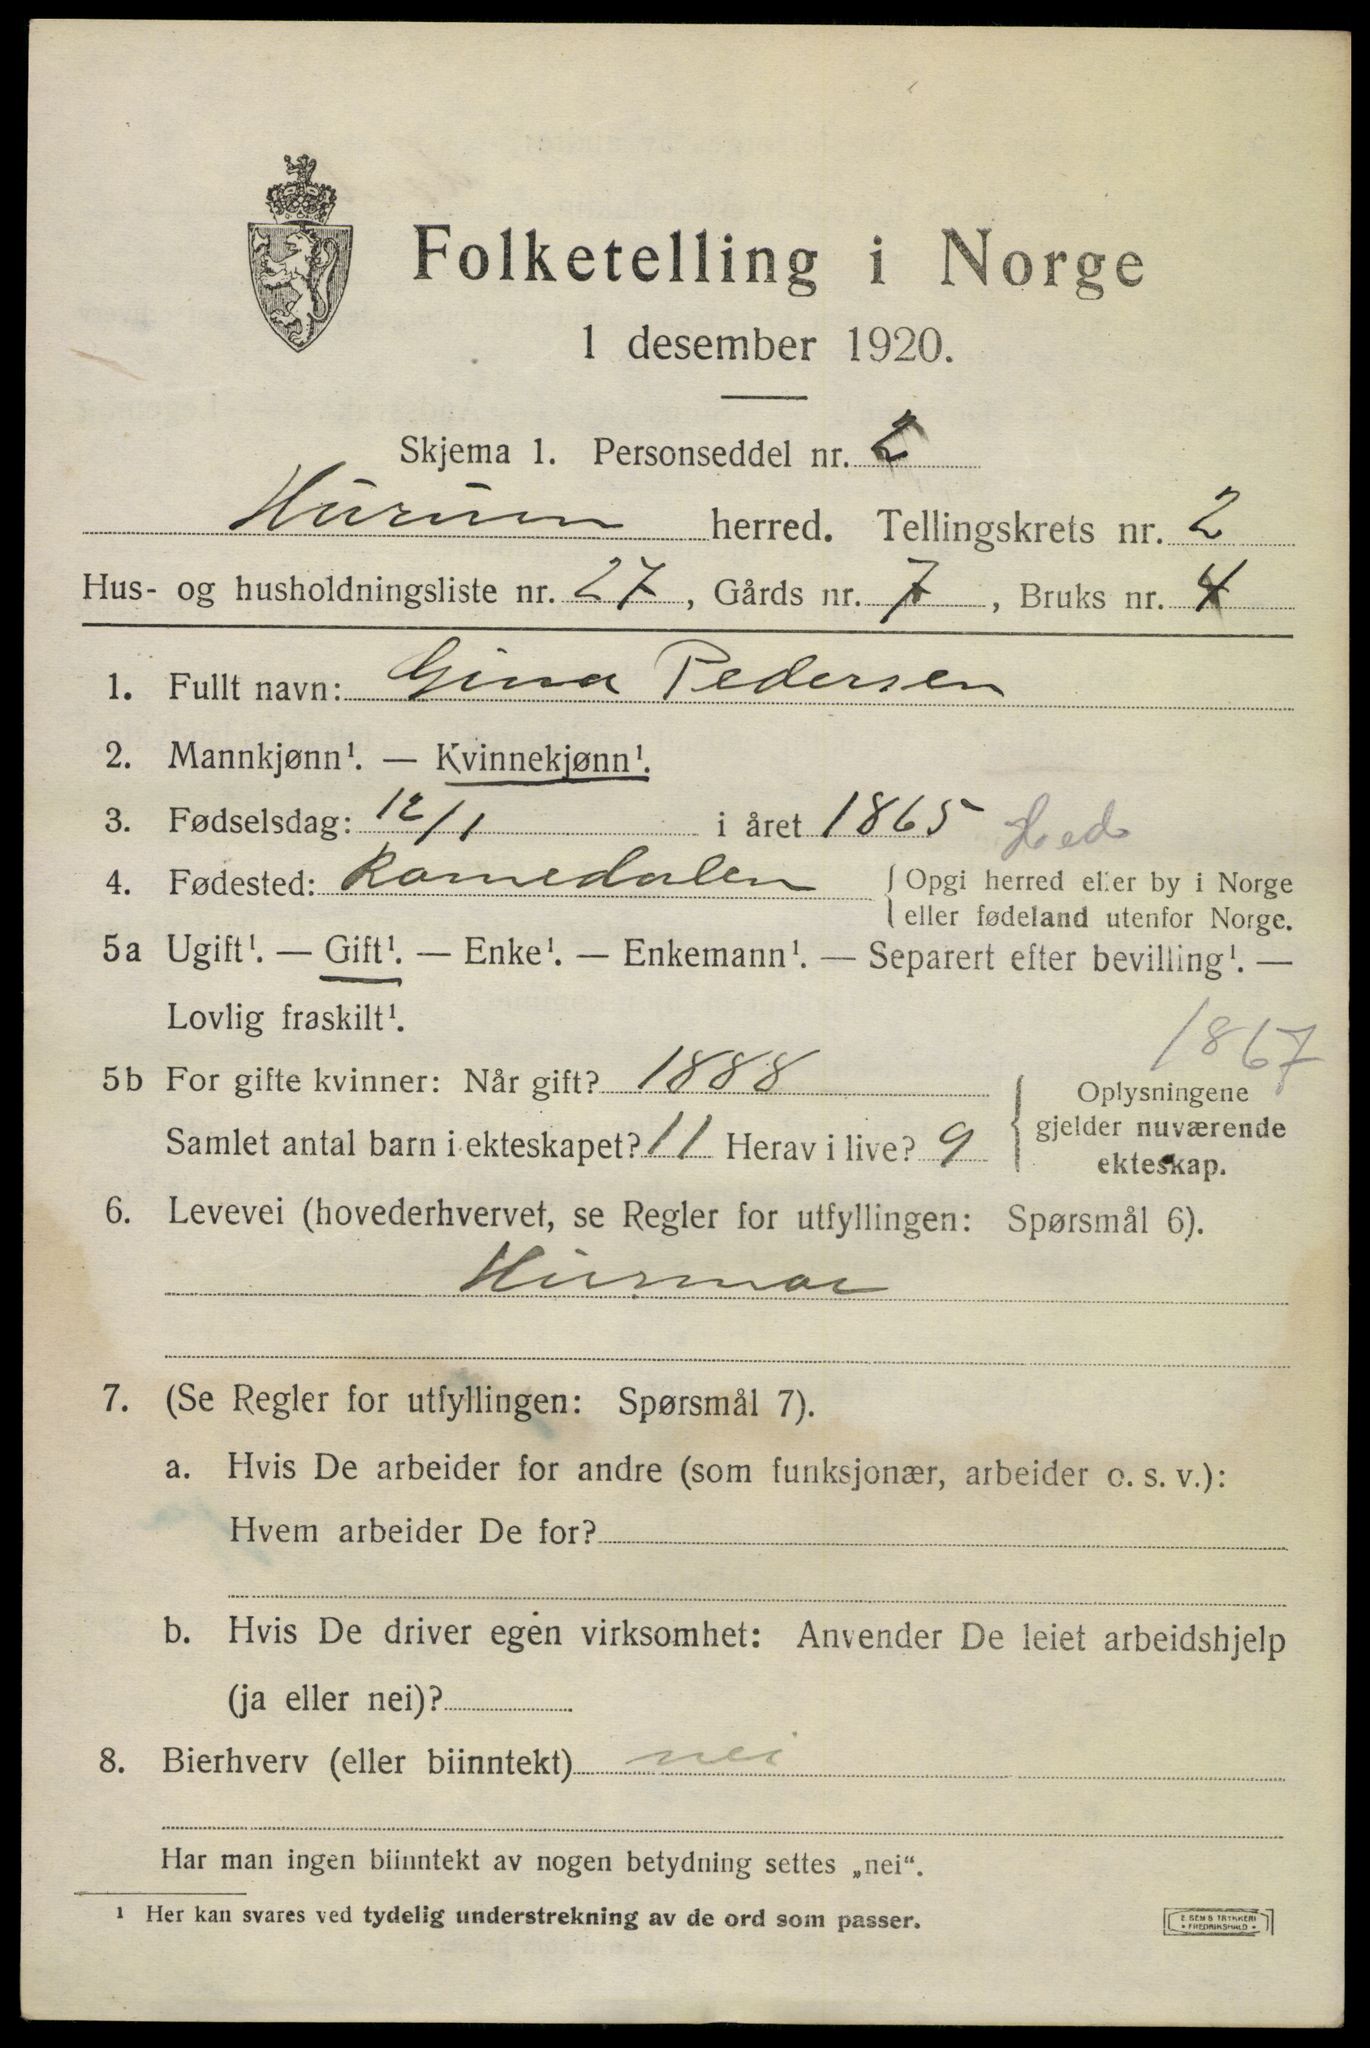 Folketelling i Norge
1 desember 1920.
Skjema 1. Personseddel nr. 2
Hurum herred. Tellingskrets nr. 2
Hus- og husholdningsliste nr. 27, Gårds nr. 7, Bruks nr. 4
1. Fullt navn: Gina Pedersen
2. Mannkjønn¹. — Kvinnekjønn¹.
3. Fødselsdag: 12/1 i året 1865 Hed
4. Fødested: Romedalen { Opgi herred eller by i Norge
eller fødeland utenfor Norge.
5a Ugift¹. — Gift¹. — Enke¹. — Enkemann¹. — Separert efter bevilling¹. —
Lovlig fraskilt¹.
1867
5b For gifte kvinner: Når gift? 1888
Samlet antal barn i ekteskapet? 11 Herav i live? 9
{ Oplysningene
gjelder nuværende
ekteskap.
6. Levevei (hovederhvervet, se Regler for utfyllingen: Spørsmål 6).
Husmor
7. (Se Regler for utfyllingen: Spørsmål 7).
a. Hvis De arbeider for andre (som funksjonær, arbeider o. s. v.):
Hvem arbeider De for?
b. Hvis De driver egen virksomhet: Anvender De leiet arbeidshjelp
(ja eller nei)?
8. Bierhverv (eller biinntekt) nei
Har man ingen biinntekt av nogen betydning settes „nei“.
¹ Her kan svares ved tydelig understrekning av de ord som passer.
E. SEM'S TRYKKERI
• FREDRIKSHALD •